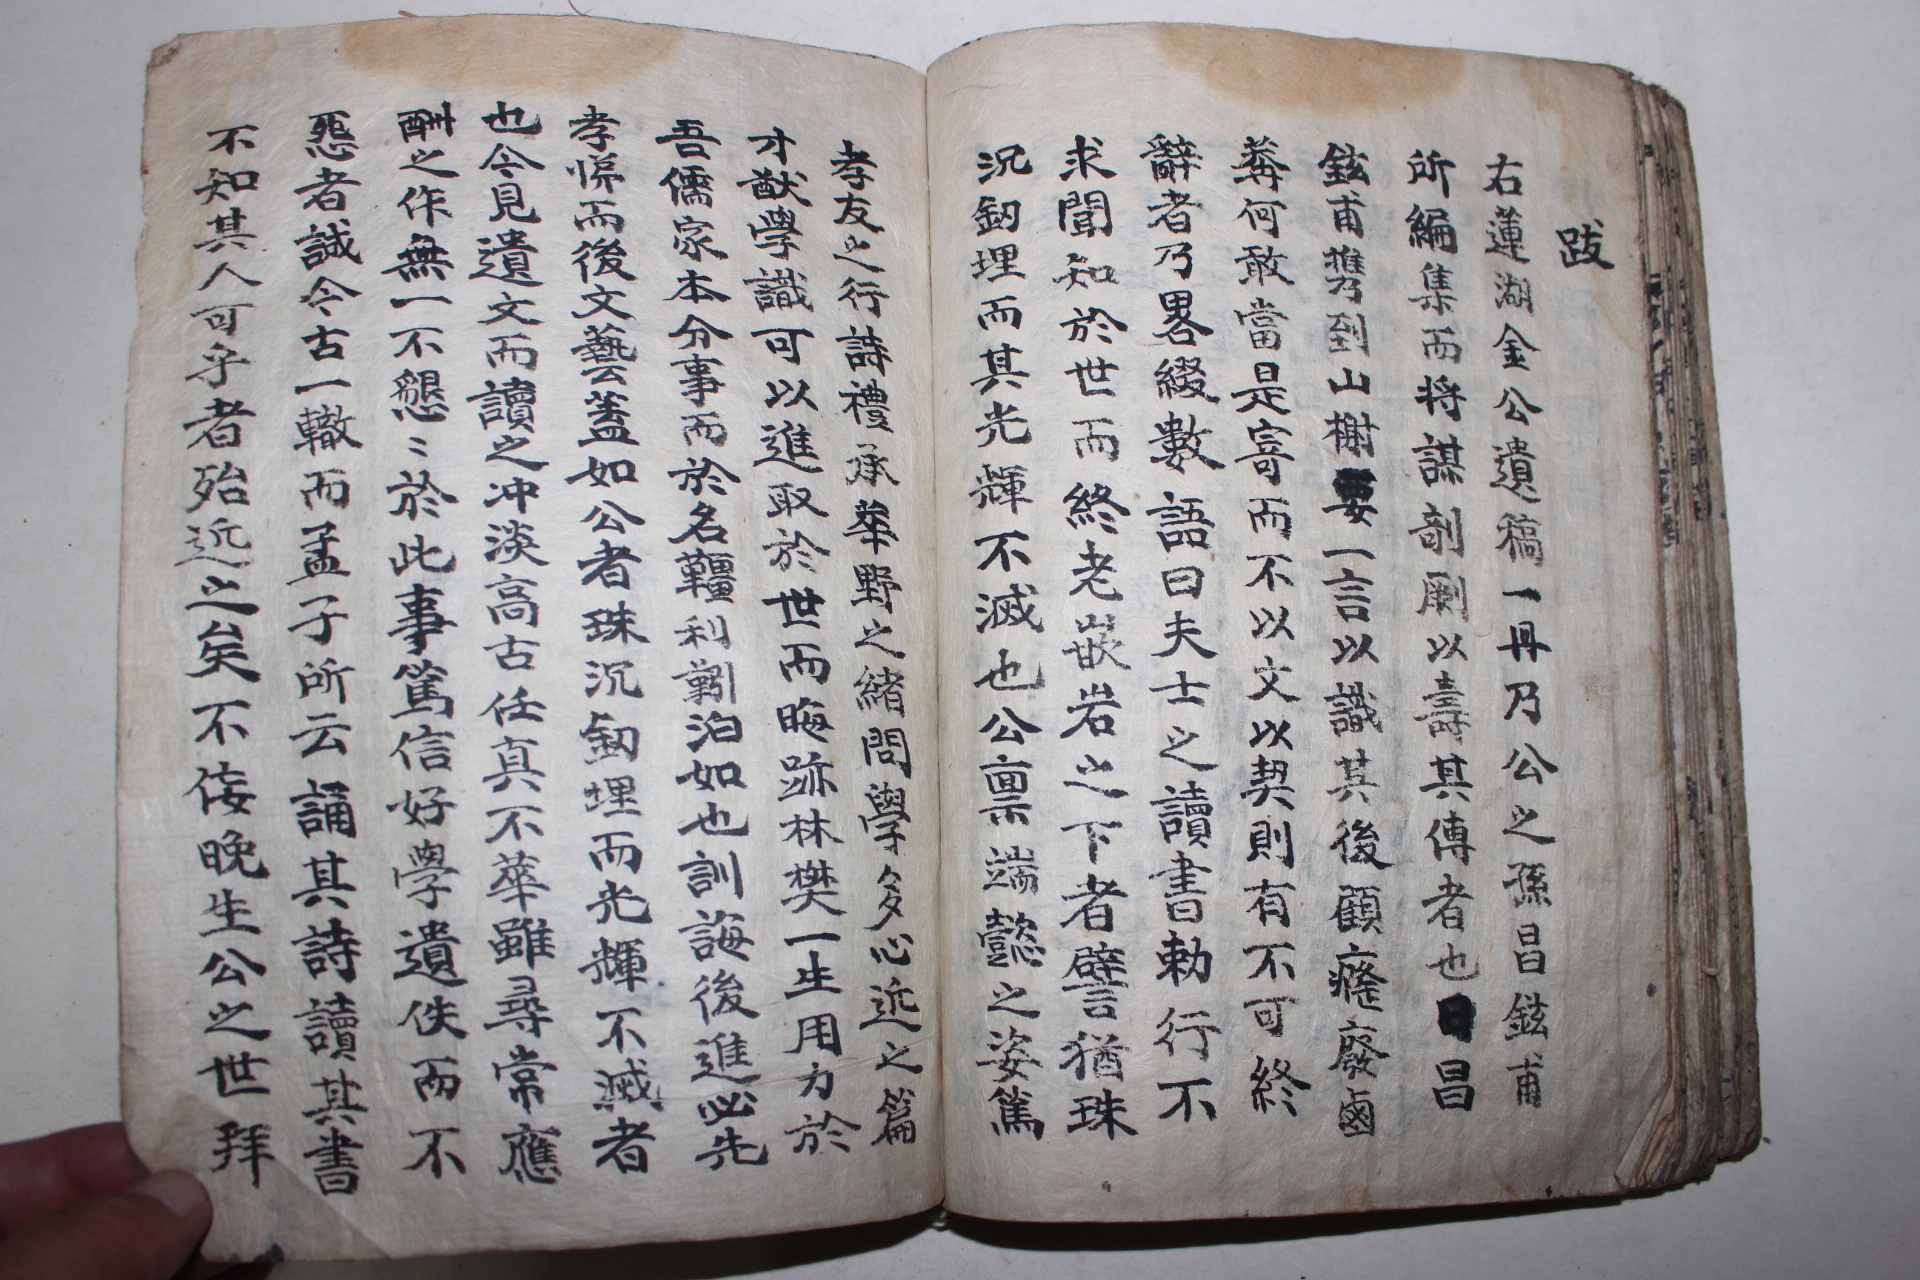 跋
右蓮湖金公遺稿一冊乃公之孫昌鉉甫
所編集而將謀剞劂以壽其傳者也日昌
鉉甫携到山榭要一言以識其後顧癃廢鹵
莽何敢當是寄而不以文以契則有不可終
辭者乃畧綴數語曰夫士之讀書勅行不
求聞知於世而終老嵌岩之下者譬猶珠
沉釰埋而其光輝不滅也公稟端懿之姿篤
孝友之行詩禮承華野之緒問學多心近之篇
才猷學識可以進取於世而晦跡林樊一生用力於
吾儒家本分事而於名韁利靷泊如也訓誨後進必先
孝悌而後文藝蓋如公者珠沉釰埋而光輝不滅者
也今見遺文而讀之冲淡高古任真不華雖尋常應
酬之作無一不懇〻於此事篤信好學遺佚而不
怨者誠今古一轍而孟子所云誦其詩讀其書
不知其人可乎者殆近之矣不佞晚生公之世拜